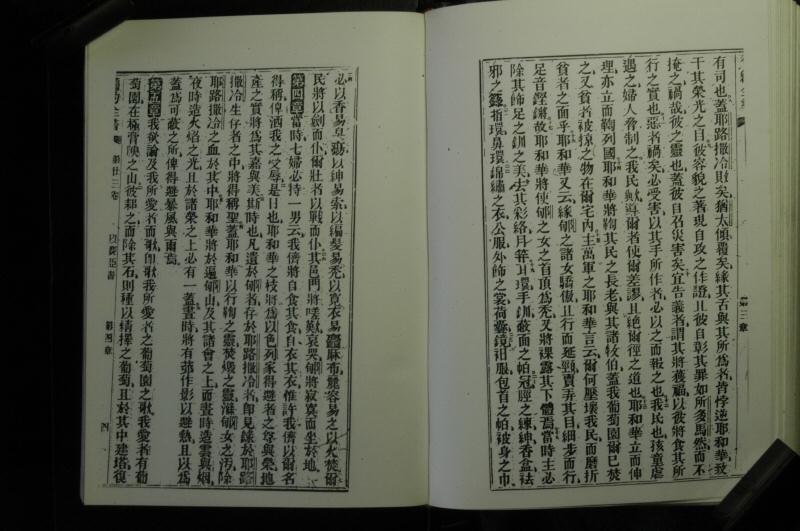 有司也蓋耶路撒冷則矣猶太傾覆矣緣其舌與其所爲者皆悖逆耶和華致
干其榮光之目彼容貌之著現自攻之作證且彼自彰其罪如所多馬然而不
掩之禍哉彼之靈也蓋彼自召災害矣宜告義者謂其將獲福以彼將食其所
行之實也惡者禍矣必受害以其手所作者必以之而報之也我民也孩童虐
遇之婦人脅制之我民歟導爾者使爾差謬且絕爾徑之道也耶和華立而伸
理亦立而鞫列國耶和華將鞫其民之長老與其諸牧伯蓋我葡萄園爾已焚
之又貧者被掠之物在爾宅內主萬軍之耶和華言云爾何壓壞我民而磨折
貧者之面乎耶和華又云緣郇之諸女驕傲且行而延頸賣弄其目細步而行
足音鏗鏘故耶和華將使郇之女之首頂爲禿又將裸露其下體焉當時主必
除其飾足之釧之美去其彩絡月笄耳環手釧蔽面之帕冠脛之練紳香盒袪
邪之 指環鼻環錦繡之衣公服外飾之裳荷囊鏡衵服包首之帕被身之巾
第三章
必以香易臭蕩以紳易索以編髮易禿以寬衣易 麻布麗容易之以火焚爾
民將以劍而仆爾壯者以戰而仆其邑門將嗟歎哀哭郇將寂寞而坐於地
第四章當時七婦必持一男云我儕將自食其食自衣其衣惟許我儕以爾名
得稱俾洒我之父辱是日也耶和華之枝將爲以色列家得避者之尊與榮地
產之實將爲其嘉與美斯時也凡遺於郇者存於耶路撒冷者卽見錄於耶路
撒冷生存者之中將得稱聖蓋耶和華以行鞫之靈焚燬之靈滌郇女之汚除
耶路撒冷之血於其中耶和華將於遍郇山及其諸會之上而晝時造雲與烟
夜時造火焰之光且於諸榮之上必有一蓋晝時將有 作影以避熱且以爲
蓋爲可蔽之所俾得避暴風與雨焉
第五章我欲論及我所愛者而歌卽歌我所愛者之葡萄園之歌我愛者有葡
萄園在極膏腴之山彼 之而除其石則種以精擇之葡萄且於其中建塔復
第廿三卷
第四章
四